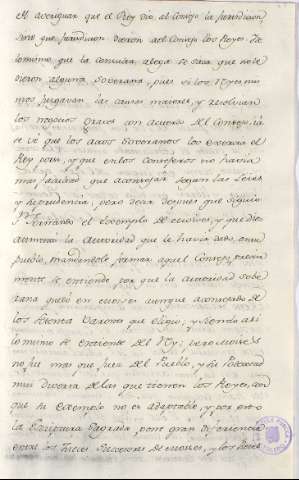 el averiguar que el Rey dio al Consejo la jurisdiccion
que jurisdicion dieron al Consejo los Reyes. De
lo mismo que la consulta alega se saca que no le
dieron alguna soverana, pues si los Reyes mis
mos juzgavan las causas maiores, y resolvian
los negocios graves con acuerdo del Consejo, ia
se vé que los actos soveranos los exercia el
Rey solo, y que en los Consejeros no havia
mas facultad que aconsejar segun las Leies
y la prudencia, pero decir despues que siguio
el exemplo de Moises, y que dios
la autoridad que le havia dado, en su
pueblo, mandandole formar aquel Consejo,
mente se entiende por que la autoridad sobe
rana quedó en Moises aunque aconsejado de
los setenta Varones que eligio, y siendo asi
lo mismo se entiende del Rey; pero Moises
no fue mas que Juez del Pueblo, y su Potestad
mui diversa de las que tienen los Reyes, con
que su exemplo no es adaptable, y por esto
la Escriptura Sagrada, pone gran diferiencia
entre los Jueces sucesores de Moises, y los Reies